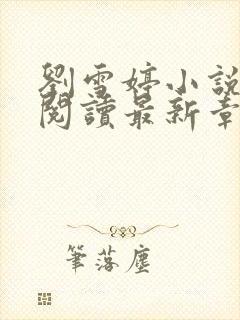 劉雪婷小說
閱讀最新章
筆落塵